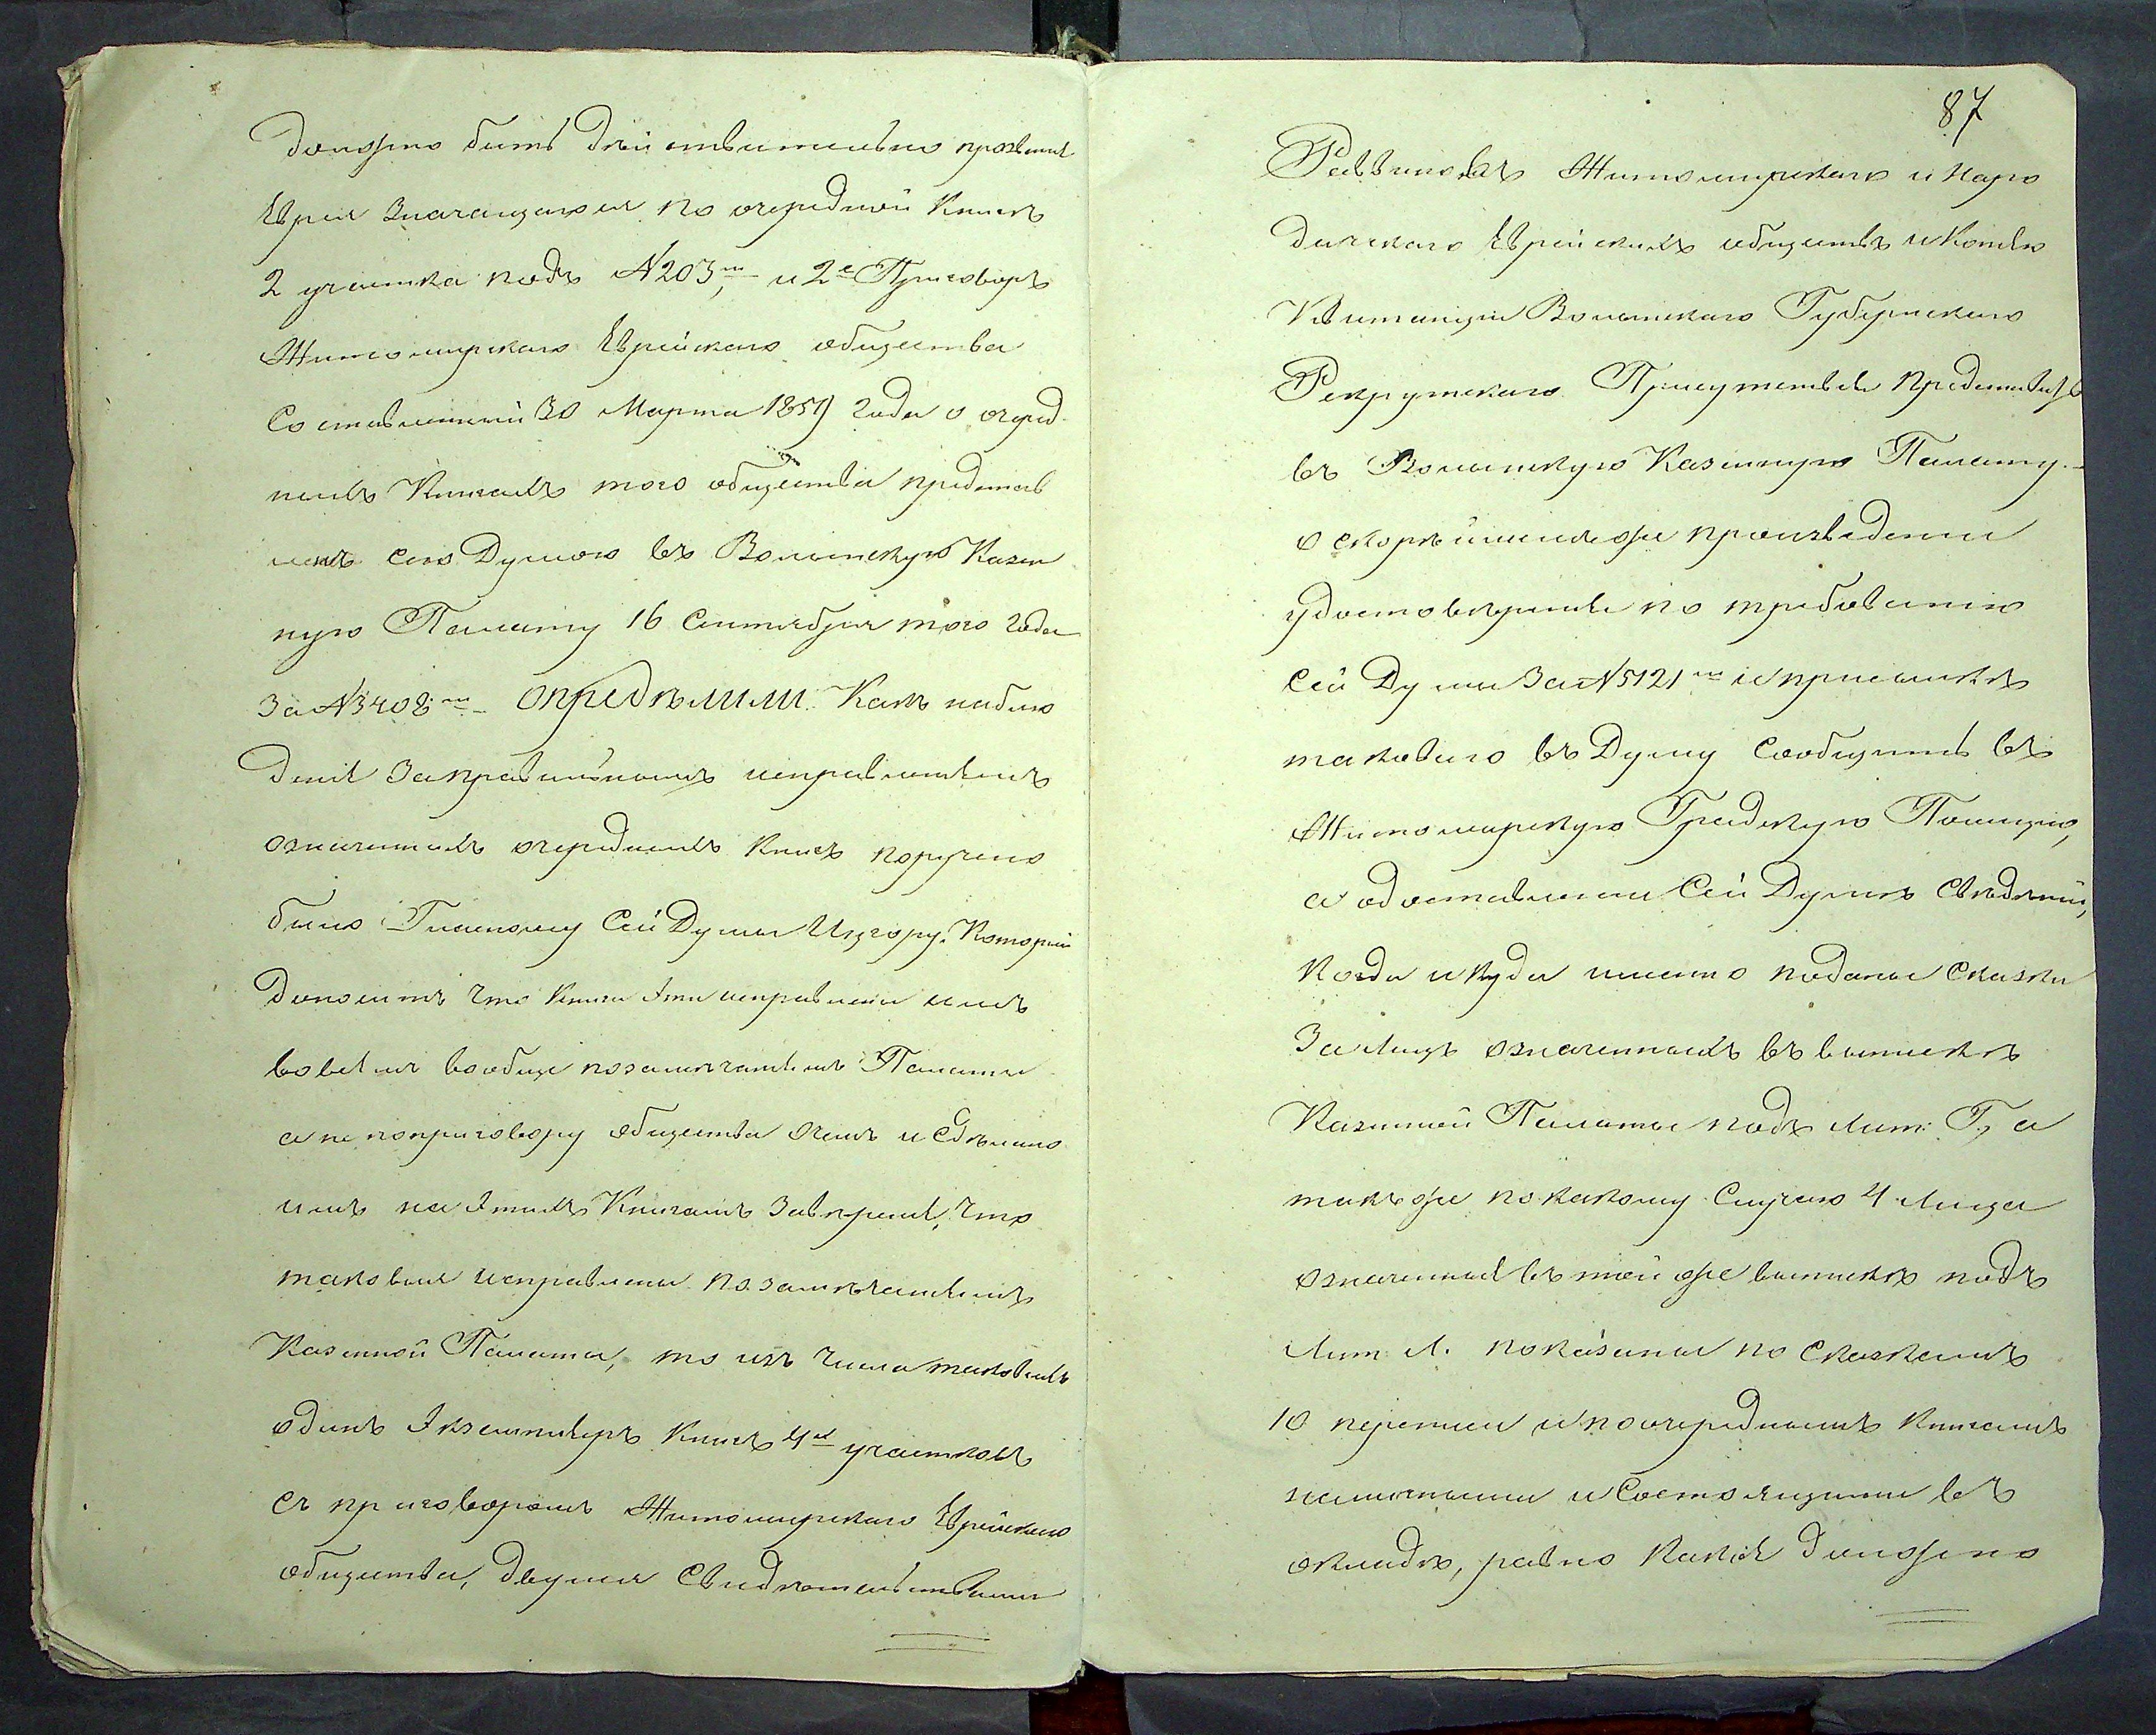 должно быть действительно прозваніе
Еврея значащагося по очередной книгѣ
2 участка подъ N 203м, и 2е Приговоръ
Житомирскаго Еврейскаго общества
составленный 30 Марта 1859 года о очеред
ныхъ книгахъ того общества представ
ленъ сею Думою въ Волынскую Казен
ную Палату 16 Сентября того года
за N 3408м Опредѣлили: Какъ наблю
деніе за правильнымъ исправленіемъ
означенныхъ очередныхъ книгъ поручено
было Гласному Сей Думы который
доноситъ что книги эти исправлены имъ
во всемъ вообще по замѣчаніямъ Палаты
а не по приговору общества о чемъ и сдѣлано
имъ на этихъ книгахъ завѣреніе, что
таковыя исправлены по замѣчаніямъ
Казенной Палаты, то изъ числа таковыхъ
одинъ экземпляръ книгъ 4хъ участковъ
съ приговоромъ Житомирскаго Еврейскаго
общества, двумя свидѣтельствами
87
Раввиновъ Житомирскаго и Наро
дическаго Еврейскихъ обществъ и копіею
квитанціи Волынскаго Губернскаго
Рекрутскаго Присутствія представить
въ Волынскую Казенную Палату.
о скорѣйшемъ же произведеніи
удостовѣренія по требованію
сей Думы за N 5121м и присылкѣ
таковаго въ Думу сообщить въ
Житомирскую Градскую Полицію,
а о доставленіи сей Думѣ свѣдѣній,
когда и куда именно поданы сказки
за лицъ означенныхъ въ выпискѣ
Казенной Палаты подъ лит: Г, а
также по какому случаю 4 лица
означенныя въ той же выпискѣ подъ
лит: Л. показаны по сказкамъ
10 переписи и по очереднымъ книгамъ
наличными и состоящими въ
окладѣ, равно какія должно